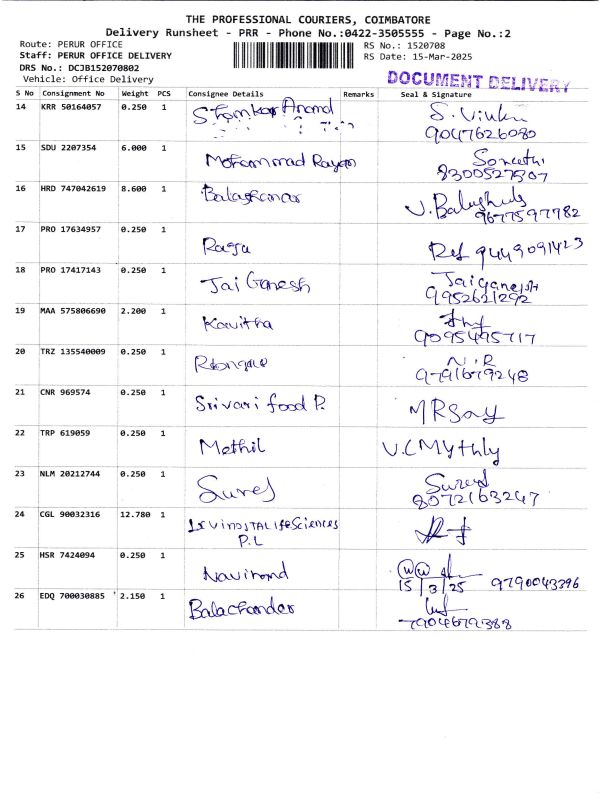 THE PROFESSIONAL COURIERS, COIMBATORE
Delivery Runsheet - PRR - Phone No.:0422-3505555 - Page No.:2
Route: PERUR OFFICE
RS No.: 1520708
Staff: PERUR OFFICE DELIVERY
RS Date: 15-Mar-2025
DRS No.: DCJB152070802
Vehicle: Office Delivery
DOCUMENT DELIVERY
S No Consignment No Weight PCS Consignee Details Remarks Seal & Signature
14 KRR 50164057 0.250 1 Anand
9047626080
15 SDU 2207354 6.000 1 Mohammad Rayan
8300527507
16 HRD 747042619 8.600 1
9677597782
17 PRO 17634957 0.250 1 Raju 9449091423
18 PRO 17417143 0.250 1 Jai Ganesh Jaiganesh
9952621292
19 MAA 575806690 2.200 1 Kavitha
9095495717
20 TRZ 135540009 0.250 1 N.R
9791679248
21 CNR 969574 0.250 1 Srivari food P.
22 TRP 619059 0.250 1 Methil V.C Mythly
23 NLM 20212744 0.250 1 Sures Sures
8072163247
24 CGL 90032316 12.780 1 LifeSciences
P.L
25 HSR 7424094 0.250 1
15/3/25 9790043396
26 EDQ 700030885 2.150 1 Balachander
7904679388